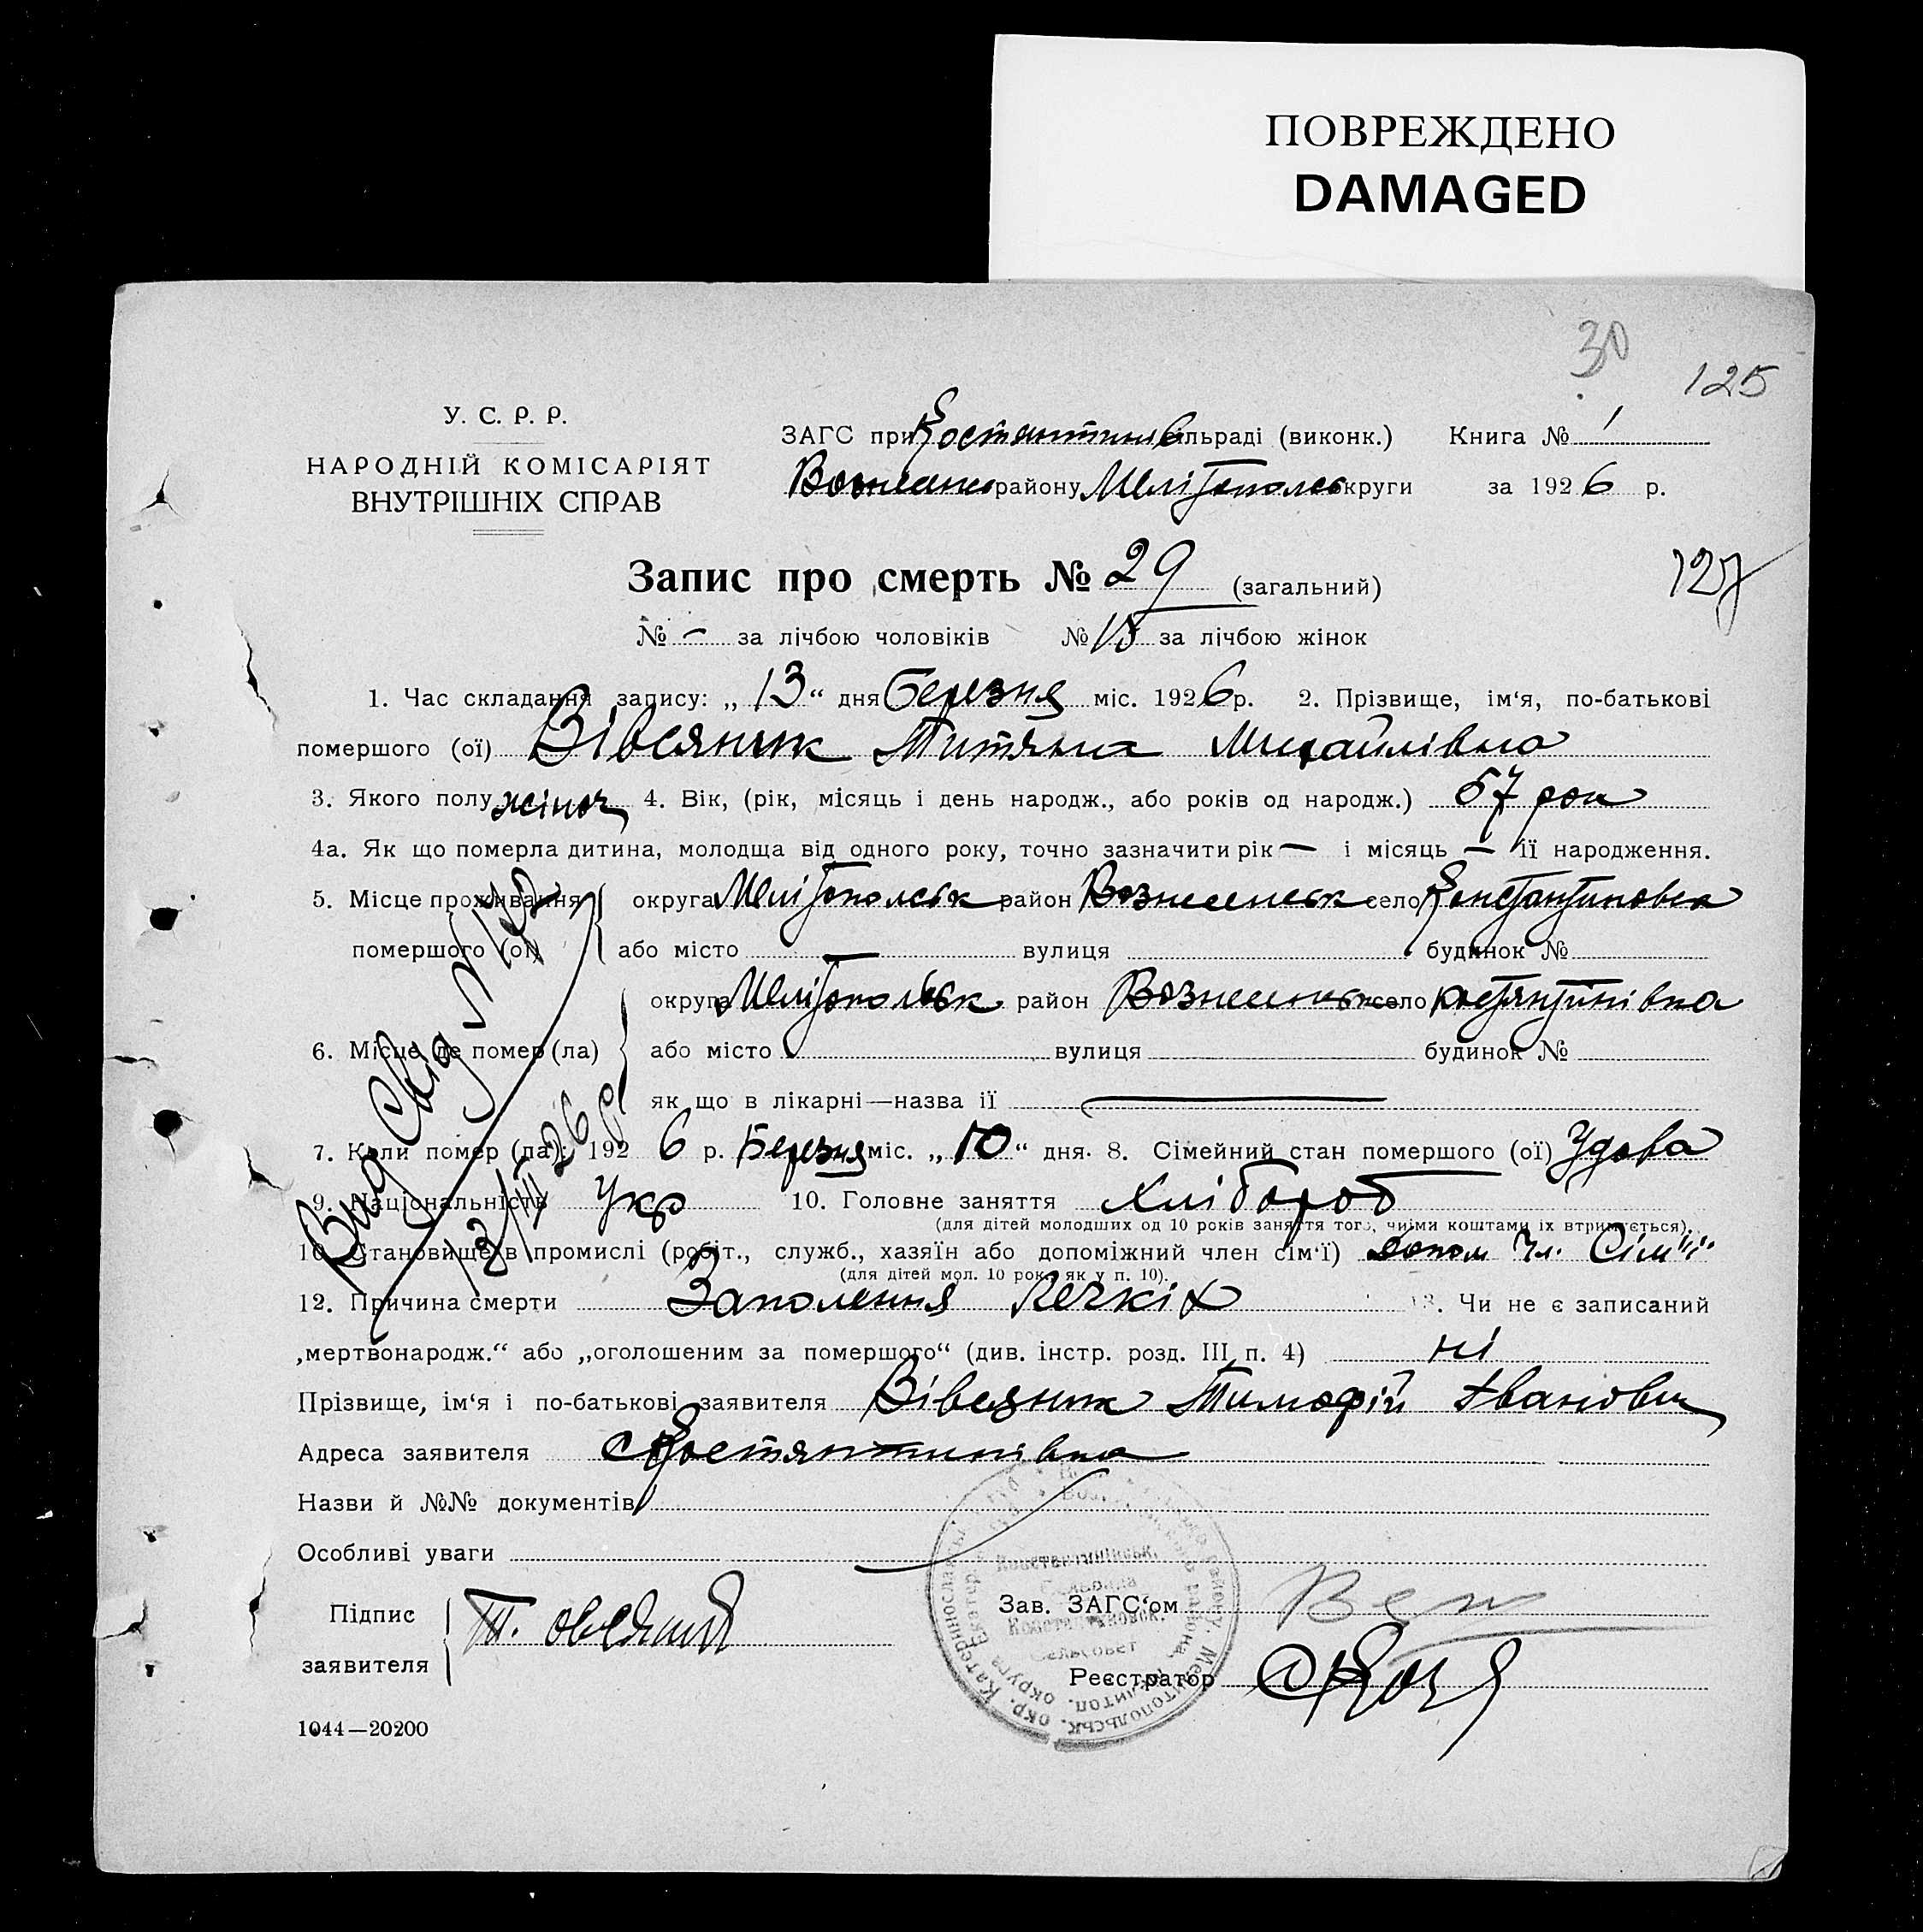 ПОВРЕЖДЕНО
DAMAGED
30
125
У. С. Р. Р.
НАРОДНІЙ КОМІСАРІЯТ
ВНУТРІШНІХ СПРАВ
ЗАГС при Костянтинів сільраді (виконк.) Книга № 1
району Мелітопольс округи за 1926 р.
Запис про смерть № 29 (загальний)
127
№ - за лічбою чоловіків № 15 за лічбою жінок
1. Час складання запису: „ 13 “ дня Березня міс. 1926 р. 2. Прізвище, ім‘я, по-батькові
помершого (ої) Вівсяник Титяна Михайлівна
3. Якого полу жіноч 4. Вік, (рік, місяць і день народж., або років од народж.) 67 рок
4а. Як що померла дитина, молодща від одного року, точно зазначити рік — і місяць — її народження.
5. Місце проживання округа Мелітопольськ район Вознесенськ село Константиновка
помершого (ої) або місто — вулиця будинок №
округа Мелітопольськ район Вознесенськ село Костянтинівка
6. Місце де помер (ла) або місто вулиця будинок №
як що в лікарні—назва її
7. Коли помер (ла): 1926 р. Березня міс. „ 10 “ дня. 8. Сімейний стан помершого (ої) Удова
9. Національність Укр 10. Головне заняття Хлібороб
(для дітей молодших од 10 років заняття того, чиїми коштами їх втримується).
10. Становище в промислі (робіт., служб., хазяїн або допоміжний член сім‘ї) допом чл. Сім"ї"
(для дітей мол. 10 рок. як у п. 10).
12. Причина смерти Заполення Легких 13. Чи не є записаний
„мертвонародж.“ або „оголошеним за помершого“ (див. інстр. розд. III п. 4) ні
Прізвище, ім‘я і по-батькові заявителя Вівсяник Тимофій Іванович
Адреса заявителя с Костянтинівка
Назви й №№ документів
Особливі уваги
Вид Свід №
13/III 26 р
Підпис
заявителя
Т.
Зав. ЗАГС‘ом
Реєстратор
1044—20200